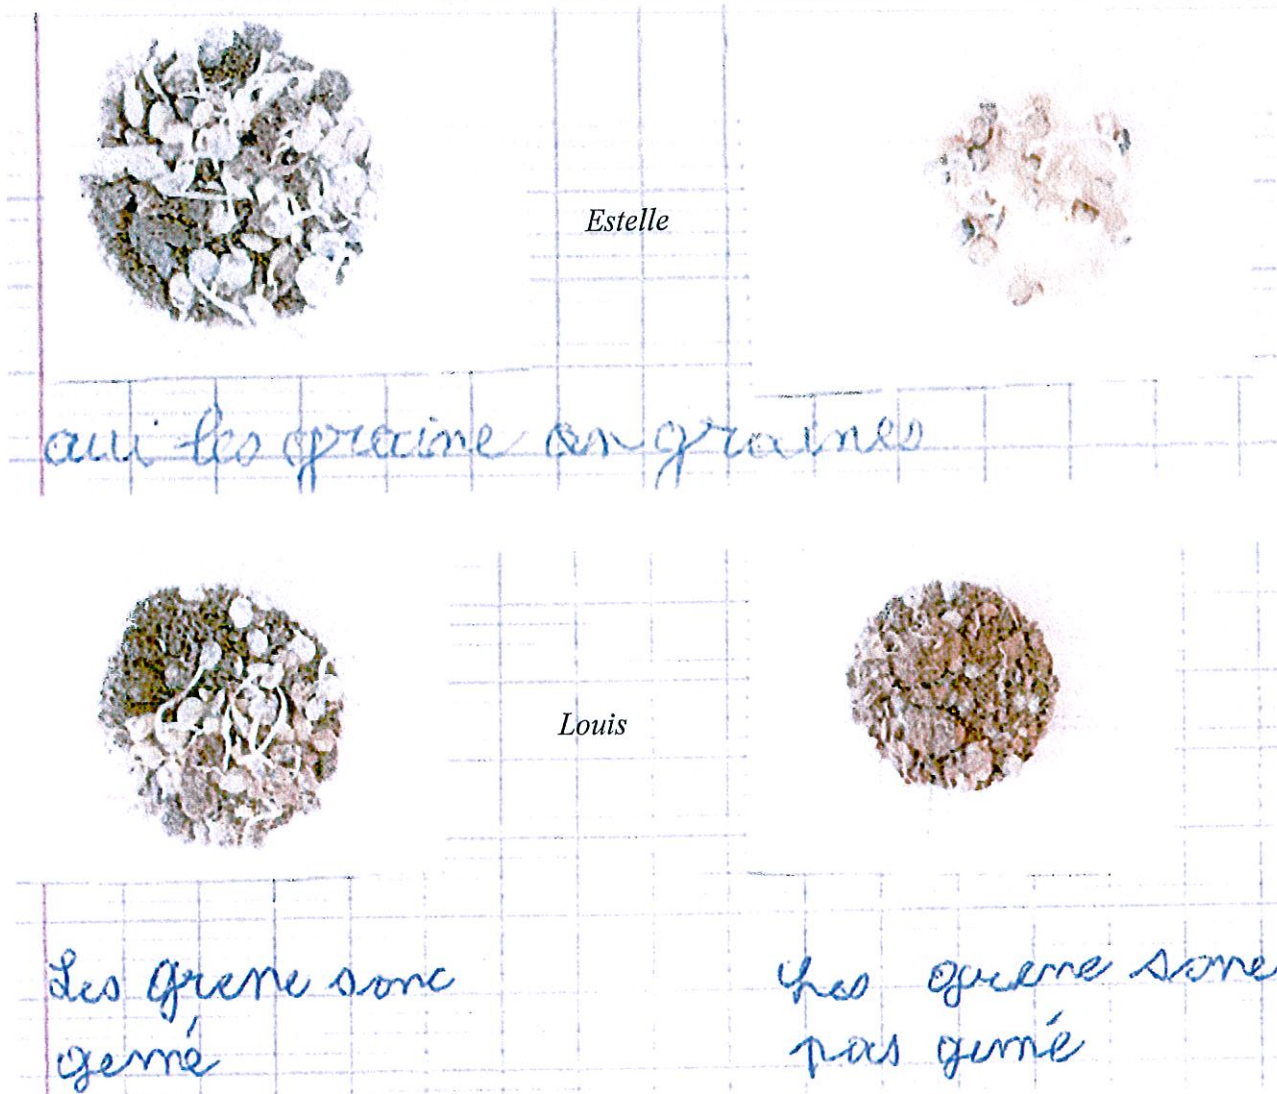 Estelle
oui les graine on graines
Louis
Les grene sone
gemé
Les grene sone
pas gemé